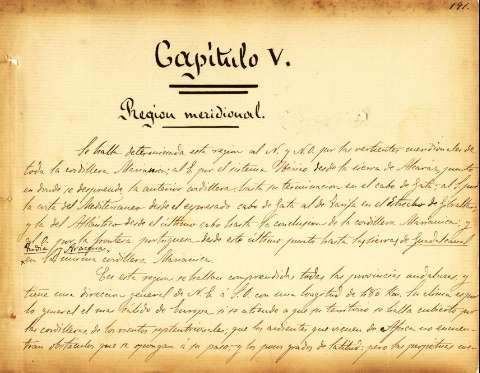 191.
Capítulo V.
Region meridional.
Se halla determinada esta region al N. y N.O. por las vertientes meridionales de
toda la cordillera Marianica; al E. por el sistema Iberico desde la sierra de Alcaraz, punto
en donde se desprende la anterior cordillera, hasta su terminacion en el cabo de Gata; al S. por
la costa del Mediterraneo desde el espresado cabo de Gata al de Tarifa en el estrecho de Gibraltar
y la del Atlantico desde el último cabo hasta la conclusion de la cordillera Marianica; y
O. por la frontera portuguesa desde este último punto hasta las sierras de Guadalcanal
Andia y Aracena,
en la misma cordillera Marianica.
En esta region se hallan comprendidas todas las provincias andaluzas, y
tiene una direccion general de N.E. á S.O. con una longitud de 480 Km. Su clima es por
lo general el mas cálido de Europa, si se atiende á que su territorio se halla cubierto por
las cordilleras de los vientos septentrionales, que los ardientes que vienen de Africa no encuen-
tran obstáculos que se opongan á su paso, y los pocos grados de latitud; pero las perspectivas